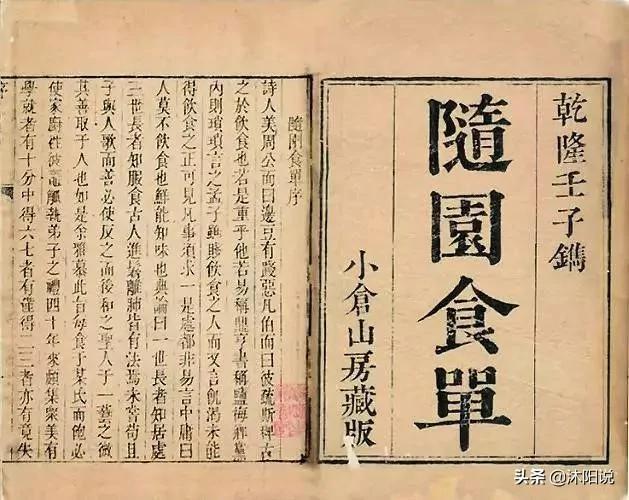 乾隆壬子鐫
隨園食單
小倉山房藏版
隨園食單序
詩人美周公而曰籩豆有踐惡凡伯而曰彼疏斯稗古
之於飲食也若是重乎他若易稱鼎亨書稱鹽梅鄉黨
內則瑣瑣言之孟子雖賤飲食之人而又言飢渴未能
得飲食之正可見凡事須求一是處都非易言中庸曰
人莫不飲食也鮮能知味也典論曰一世長者知居處
三世長者知服食古人進鬐離肺皆有法焉未嘗苟且
子與人歌而善必使反之而後和之聖人于一藝之微
其善取于人也如是余雅慕此旨每食于某氏而飽必
使家廚往彼竈觚執弟子之禮四十年來頗集眾美有
學就者有十分中得六七者有僅得二三者亦有竟失
头条 @沐阳说